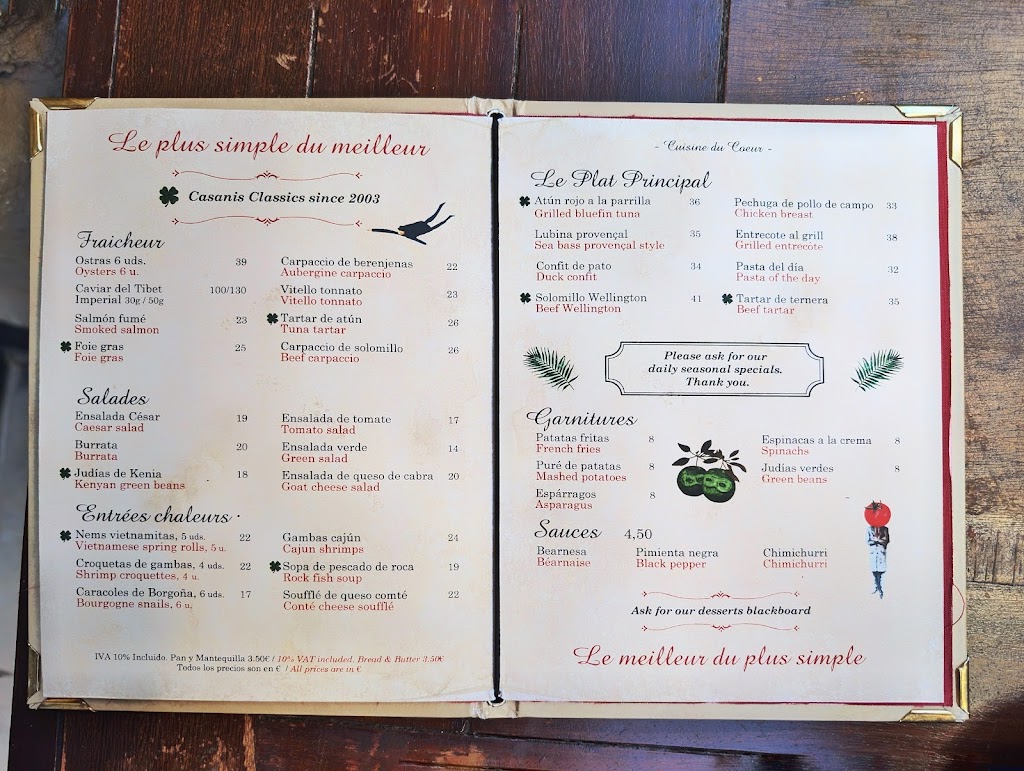 Le plus simple du meilleur
Casanis Classics since 2003
Fraicheur
Ostras 6 uds. 39
Oysters 6 u.
Caviar del Tibet 100/130
Imperial 30g / 50g
Salmón fumé 23
Smoked salmon
Foie gras 25
Foie gras
Carpaccio de berenjenas 22
Aubergine carpaccio
Vitello tonnato 23
Vitello tonnato
Tartar de atún 26
Tuna tartar
Carpaccio de solomillo 26
Beef carpaccio
Salades
Ensalada César 19
Caesar salad
Burrata 20
Burrata
Judías de Kenia 18
Kenyan green beans
Ensalada de tomate 17
Tomato salad
Ensalada verde 14
Green salad
Ensalada de queso de cabra 20
Goat cheese salad
Entrées chaleurs
Nems vietnamitas, 5 uds. 22
Vietnamese spring rolls, 5 u.
Croquetas de gambas, 4 uds. 22
Shrimp croquettes, 4 u.
Caracoles de Borgoña, 6 uds. 17
Bourgogne snails, 6 u.
Gambas cajún 24
Cajun shrimps
Sopa de pescado de roca 19
Rock fish soup
Soufflé de queso comté 22
Conté cheese soufflé
IVA 10% Incluido. Pan y Mantequilla 3.50€ / 10% VAT included. Bread & Butter 3.50€
Todos los precios son en € / All prices are in €
- Cuisine du Coeur -
Le Plat Principal
Atún rojo a la parrilla 36
Grilled bluefin tuna
Lubina provençal 35
Sea bass provençal style
Confit de pato 34
Duck confit
Solomillo Wellington 41
Beef Wellington
Pechuga de pollo de campo 33
Chicken breast
Entrecote al grill 38
Grilled entrecote
Pasta del día 32
Pasta of the day
Tartar de ternera 35
Beef tartar
Please ask for our
daily seasonal specials.
Thank you.
Garnitures
Patatas fritas 8
French fries
Puré de patatas 8
Mashed potatoes
Espárragos 8
Asparagus
Espinacas a la crema 8
Spinachs
Judías verdes 8
Green beans
Sauces 4,50
Bearnesa
Béarnaise
Pimienta negra
Black pepper
Chimichurri
Chimichurri
Ask for our desserts blackboard
Le meilleur du plus simple